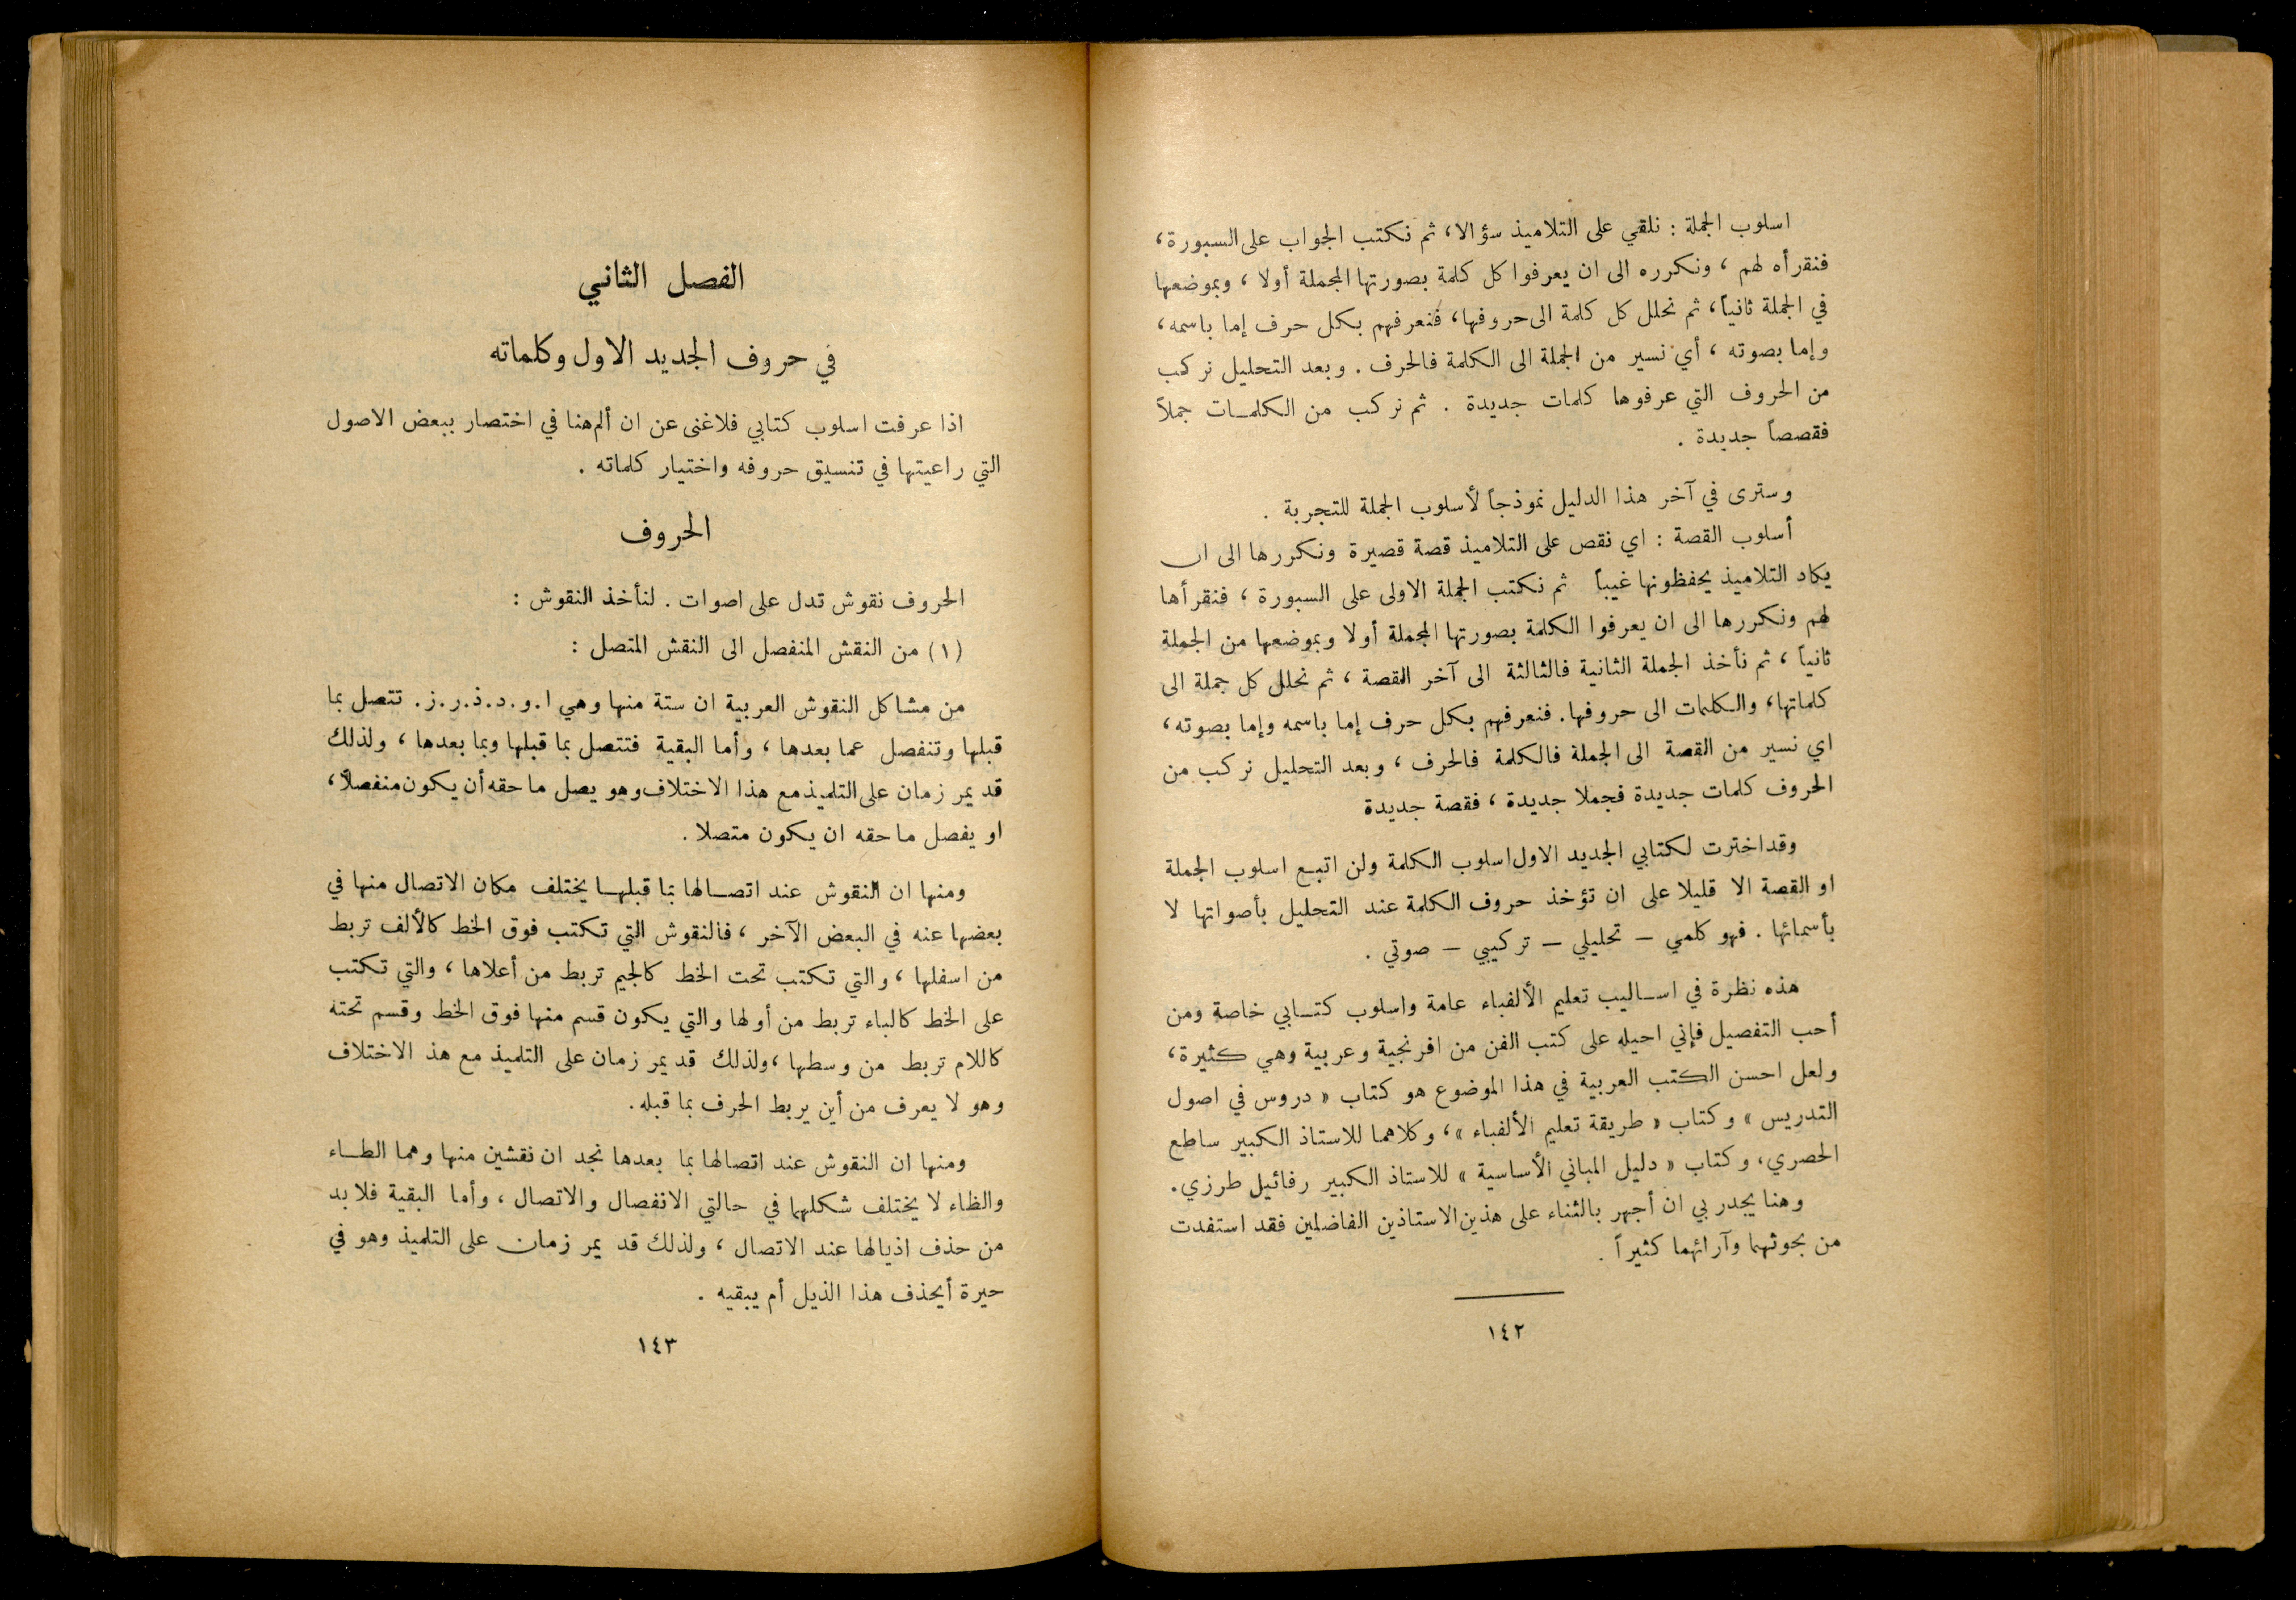 اسلوب الجملة : نلقي على التلاميذ سؤالا، ثم نكتب الجواب على السبورة،
فنقرأه لهم ، ونكرره الى ان يعرفوا كل كلمة بصورتها المجملة أولا ، وبموضعها
في الجملة ثانياً، ثم نحلل كل كلمة الى حروفها، فنعرفهم بكل حرف إما باسمه،
وإما بصوته ، أي نسير من الجملة الى الكلمة فالحرف . وبعد التحليل نركب
من الحروف التي عرفوها كلمات جديدة . ثم نركب من الكلمات جملاً
فقصصاً جديدة .
وسترى في آخر هذا الدليل نموذجاً لأسلوب الجملة للتجربة .
أسلوب القصة : اي نقص على التلاميذ قصة قصيرة ونكررها الى ان
يكاد التلاميذ يحفظونها غيباً ثم نكتب الجملة الاولى على السبورة ، فنقرأها
لهم ونكررها الى ان يعرفوا الكلمة بصورتها المجملة أولا وبموضعها من الجملة
ثانياً ، ثم نأخذ الجملة الثانية فالثالثة الى آخر القصة ، ثم نحلل كل جملة الى
كلماتها، والكلمات الى حروفها. فنعرفهم بكل حرف إما باسمه وإما بصوته،
اي نسير من القصة الى الجملة فالكلمة فالحرف ، وبعد التحليل نركب من
الحروف كلمات جديدة فجملا جديدة ، فقصة جديدة
وقد اخترت لكتابي الجديد الاول اسلوب الكلمة ولن اتبع اسلوب الجملة
او القصة الا قليلا على ان تؤخذ حروف الكلمة عند التحليل بأصواتها لا
بأسمائها . فهو كلمي – تحليلي – تركيبي – صوتي .
هذه نظرة في اساليب تعليم الألفباء عامة واسلوب كتابي خاصة ومن
أحب التفصيل فإني احيله على كتب الفن من افرنجية وعربية وهي كثيرة،
ولعل احسن الكتب العربية في هذا الموضوع هو كتاب « دروس في اصول
التدريس » وكتاب « طريقة تعليم الألفباء »، وكلاهما للاستاذ الكبير ساطع
الحصري، وكتاب « دليل المباني الأساسية » للاستاذ الكبير رفائيل طرزي.
وهنا يجدر بي ان أجهر بالثناء على هذين الاستاذين الفاضلين فقد استفدت
من بحوثهما وآرائهما كثيراً .
١٤٢
الفصل الثاني
في حروف الجديد الاول وكلماته
اذا عرفت اسلوب كتابي فلا غنى عن ان ألم هنا في اختصار ببعض الاصول
التي راعيتها في تنسيق حروفه واختيار كلماته .
الحروف
الحروف نقوش تدل على اصوات . لنأخذ النقوش :
(١) من النقش المنفصل الى النقش المتصل :
من مشاكل النقوش العربية ان ستة منها وهي ا . و . د . ذ . ر . ز . تتصل بما
قبلها وتنفصل عما بعدها ، وأما البقية فتتصل بما قبلها وبما بعدها ، ولذلك
قد يمر زمان على التلميذ مع هذا الاختلاف وهو يصل ما حقه أن يكون منفصلاً،
او يفصل ما حقه ان يكون متصلا .
ومنها ان النقوش عند اتصالها بما قبلها يختلف مكان الاتصال منها في
بعضها عنه في البعض الآخر ، فالنقوش التي تكتب فوق الخط كالألف تربط
من اسفلها ، والتي تكتب تحت الخط كالجيم تربط من أعلاها ، والتي تكتب
على الخط كالباء تربط من أولها والتي يكون قسم منها فوق الخط وقسم تحته
كاللام تربط من وسطها ، ولذلك قد يمر زمان على التلميذ مع هذ الاختلاف
وهو لا يعرف من أين يربط الحرف بما قبله.
ومنها ان النقوش عند اتصالها بما بعدها نجد ان نقشين منها وهما الطاء
والظاء لا يختلف شكلهما في حالتي الانفصال والاتصال ، وأما البقية فلا بد
من حذف اذيالها عند الاتصال ، ولذلك قد يمر زمان على التلميذ وهو في
حيرة أيحذف هذا الذيل أم يبقيه .
١٤٣